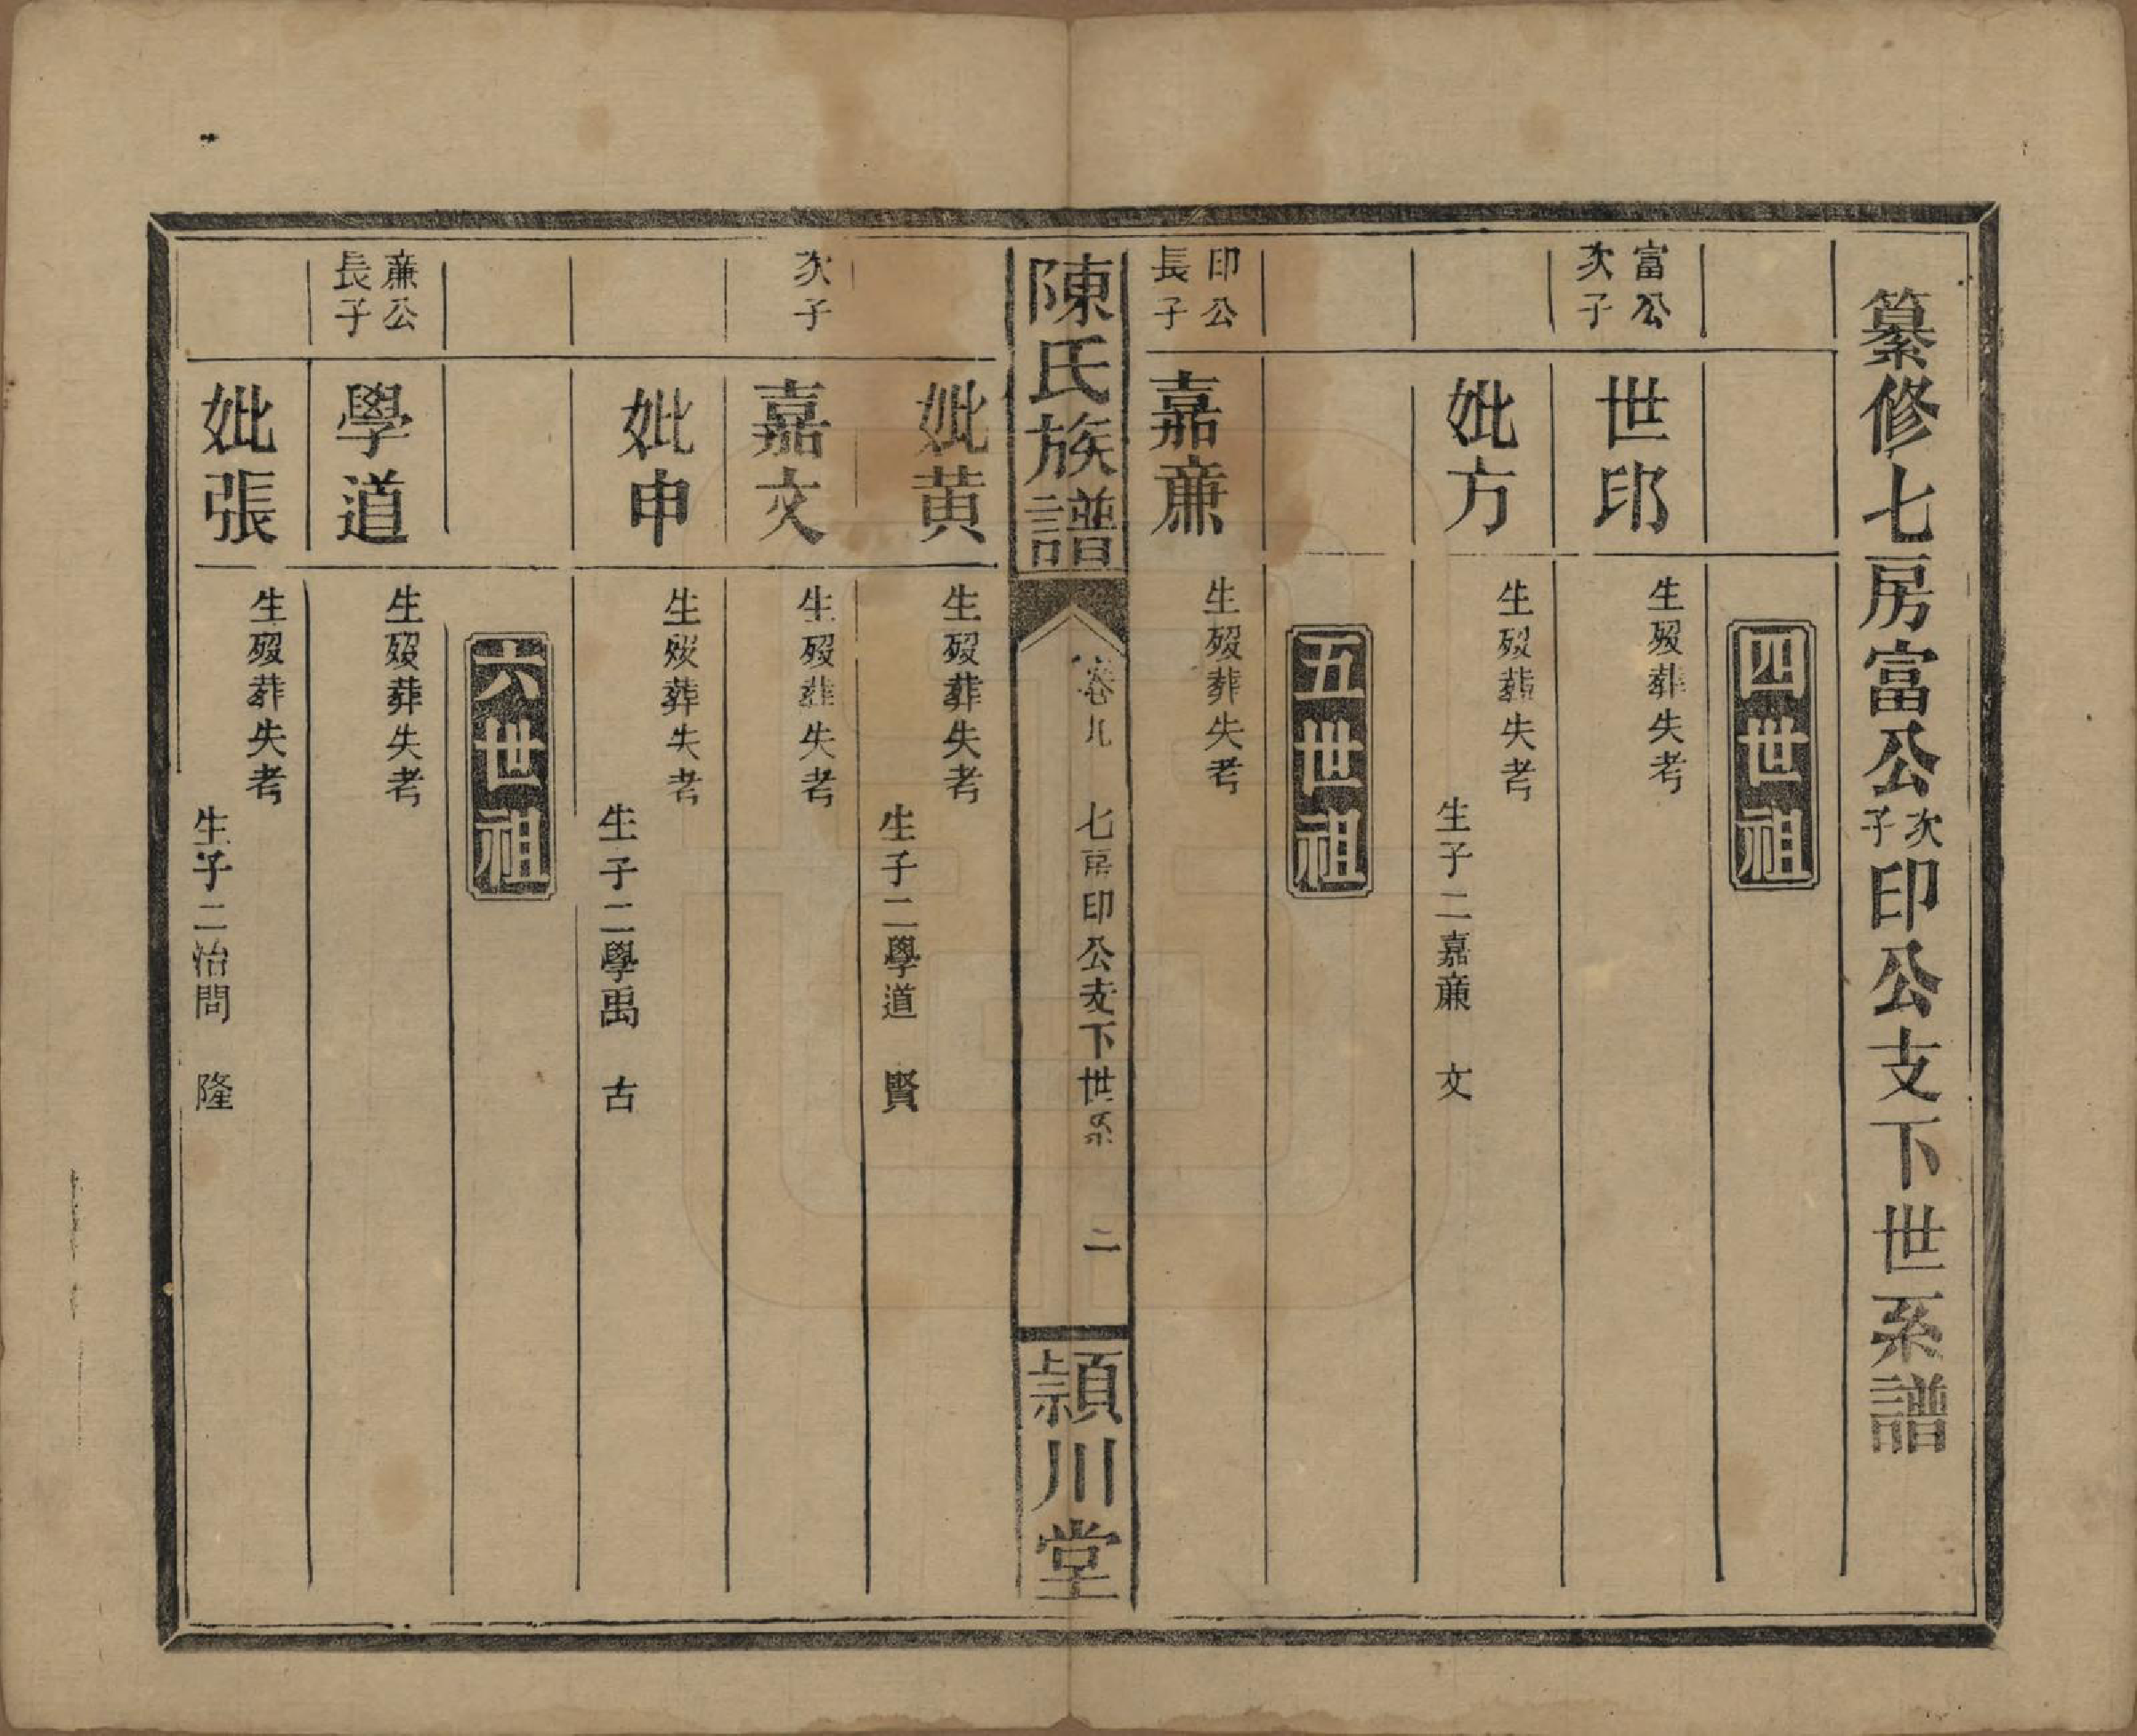 纂修七房富公次子印公支下世系譜
四世祖
富公次子
世印
生歿葬失考
妣方
生歿葬失考
生子二嘉亷　文
五世祖
印公長子
嘉亷
生歿葬失考
陳氏族譜
卷九
七房印公支下世系
二
潁川堂
妣黄
生歿葬失考
生子二學道　賢
次子
嘉文
生歿葬失考
妣申
生歿葬失考
生子二學禹　古
六世祖
亷公長子
學道
生歿葬失考
妣張
生歿葬失考
生子二治問　隆